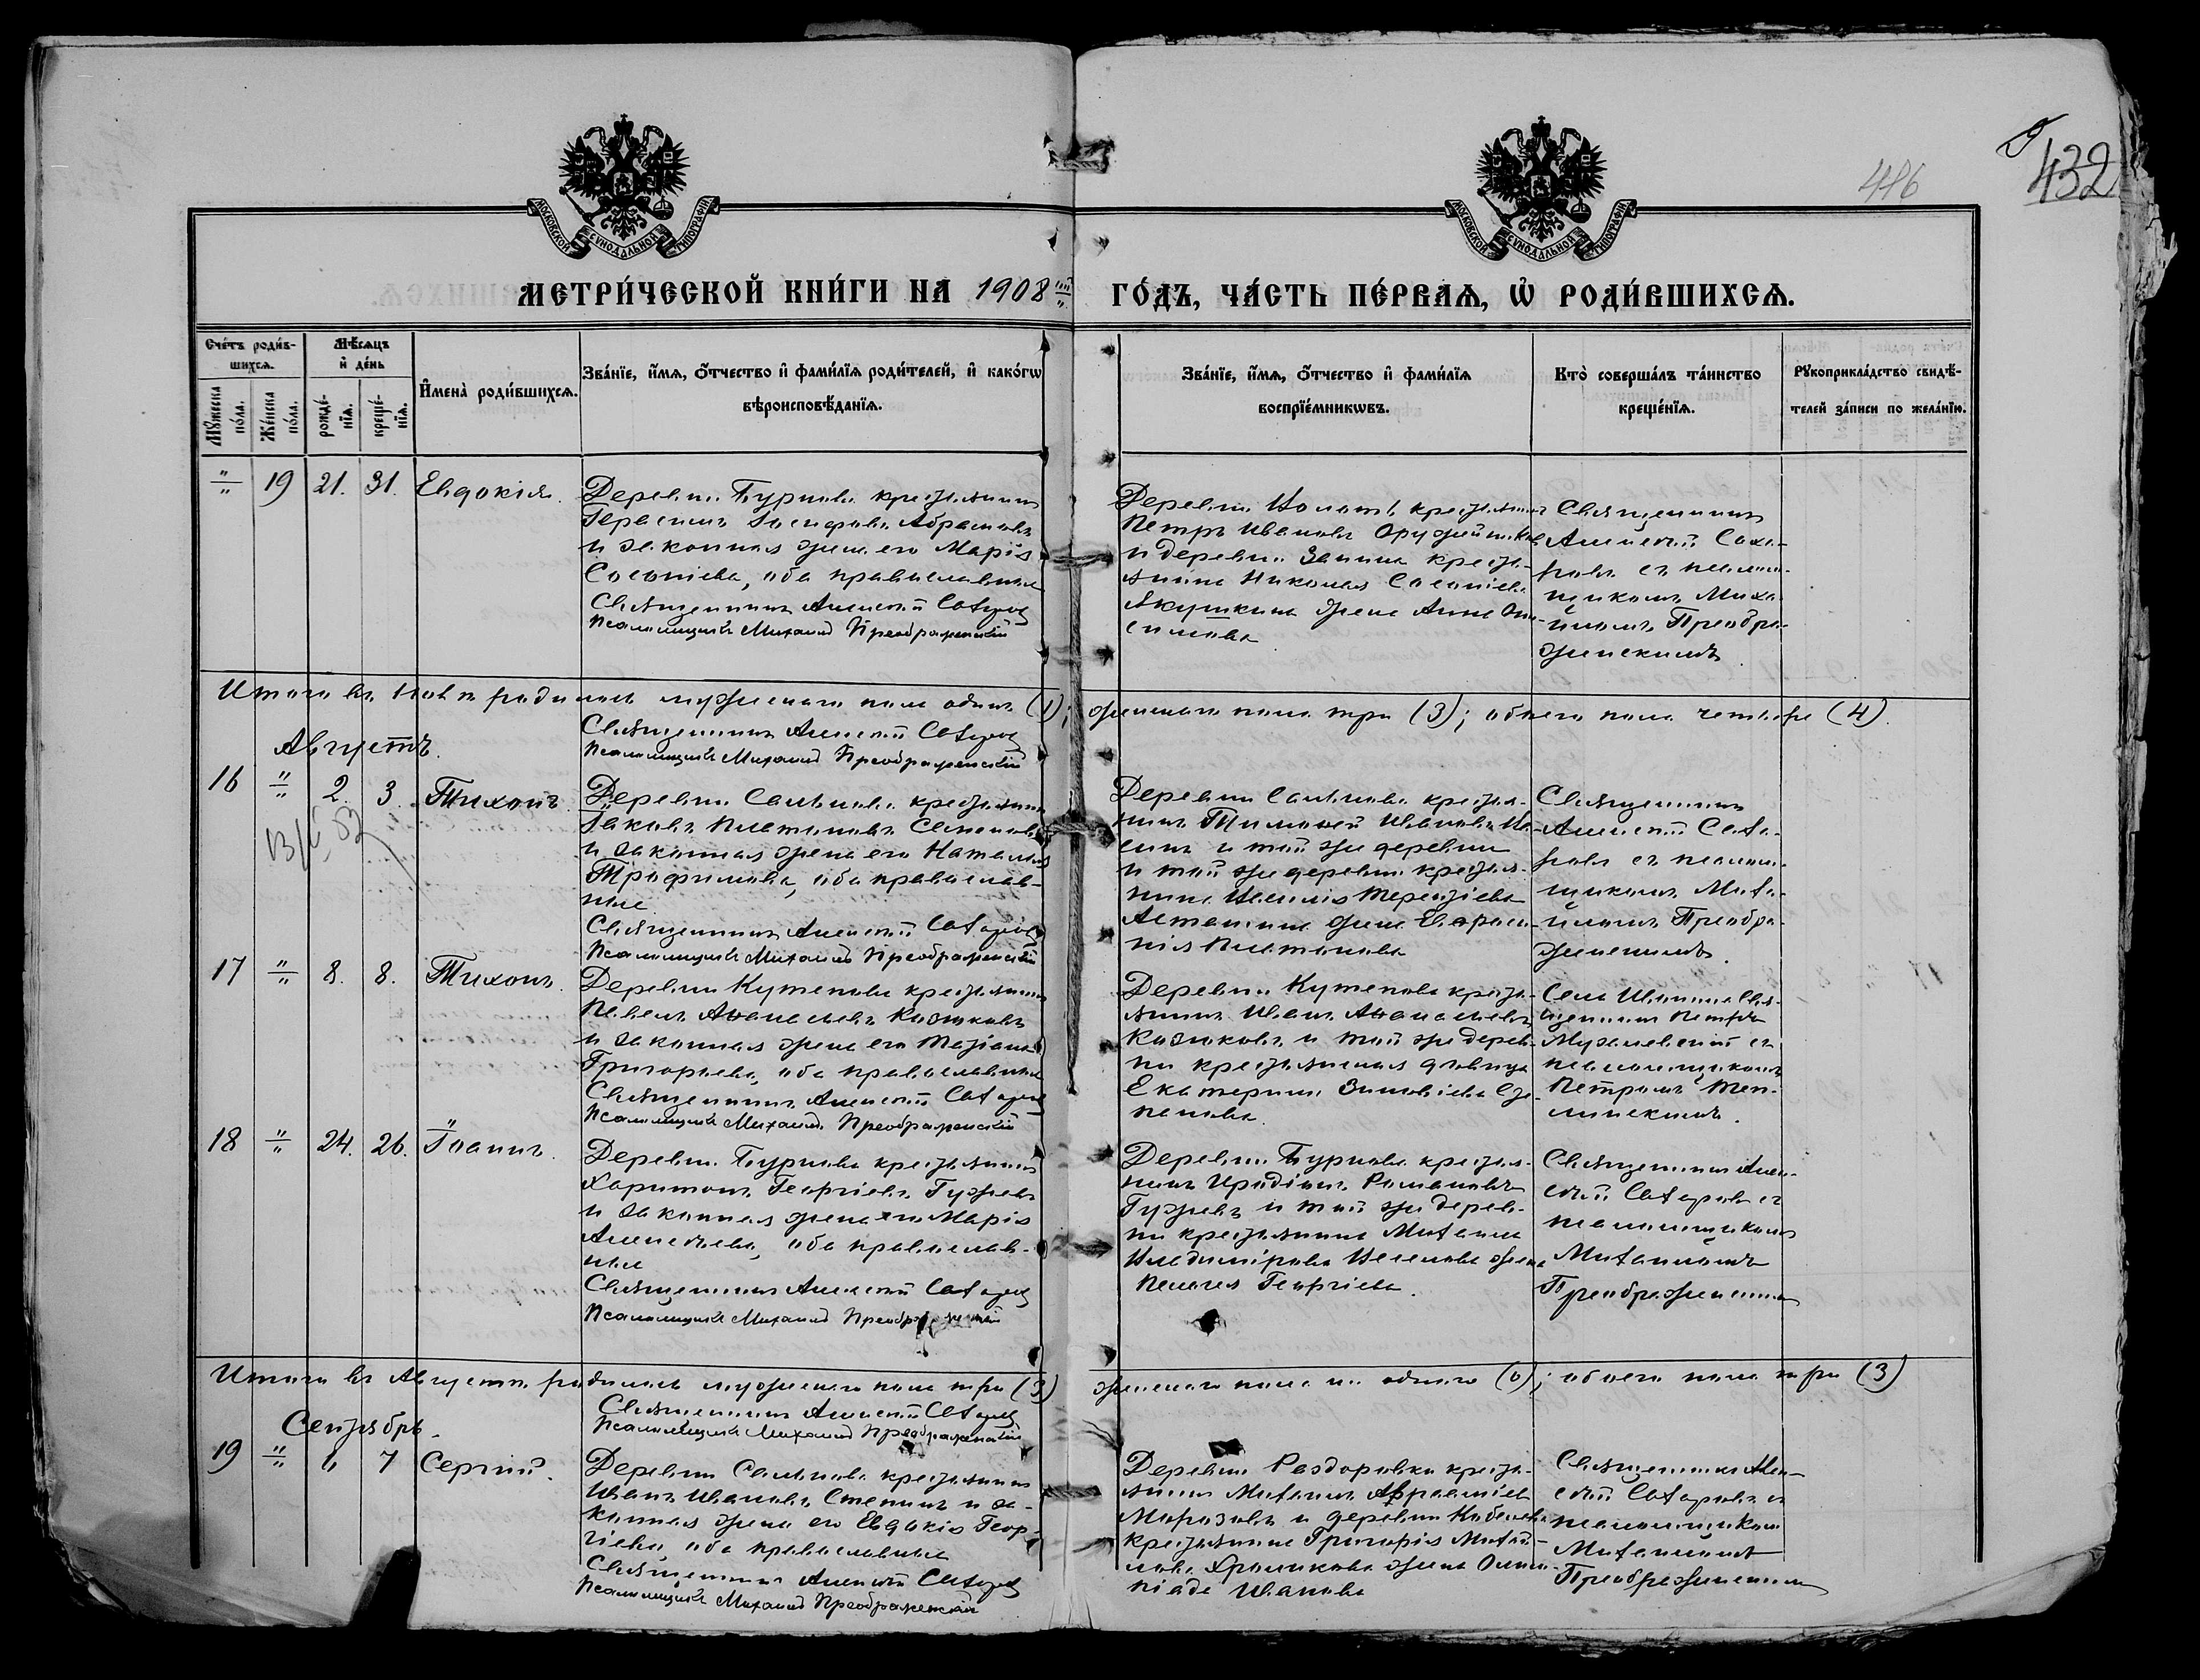 432
416
МОСКОВСКОЙ СѴНОДАЛЬНОЙ ТИПОГРАФІИ
МОСКОВСКОЙ СѴНОДАЛЬНОЙ ТИПОГРАФІИ
МЕТРИ́ЧЕСКОЙ КНИ́ГИ НА 1908 ГО́ДЪ, ЧА́СТЬ ПЕ́РВАѦ, Ѽ РОДИ́ВШИХСѦ.
Сче́тъ роди́в-
шихсѧ.
Мꙋ́жеска по́ла.
Же́нска по́ла.
Мѣ́сѧцъ
и҆ де́нь
рожде́-
нїѧ.
креще́-
нїѧ.
И҆мена̀ роди́вшихсѧ.
Зва́нїе, и҆́мѧ, ѻ҆́тчество и҆ фами́лїѧ роди́телей, и҆ како́гѡ
вѣроисповѣ́данїѧ.
Зва́нїе, и҆́мѧ, ѻ҆́тчество и҆ фами́лїѧ
воспрїе́мникѡвъ.
Кто̀ соверша́лъ та́инство
креще́нїѧ.
Рꙋкоприкла́дство свидѣ́-
телей за́писи по жела́нїю.
" 19 21. 31. Евдокія.
Деревни Бурнова крестьянинъ
Герасимъ Іосифовъ Абрамовъ
и законная жена его Марія
Сосоніева, оба православные
Священникъ Алексій Сахаровъ
Псаломщикъ Михаилъ Преображенскій
Петръ Ивановъ
и деревни крестья-
нина Николая Сосоніева
Якушкина жена Анна Они-
симова
Священникъ
Алексій Саха-
ровъ съ псалом-
щикомъ Миха-
иломъ Преобра-
женскимъ
Итого въ Іюлѣ родилось мужескаго пола одинъ (1); женскаго пола три (3); обоего пола четыре (4).
Священникъ Алексій Сахаровъ
Псаломщикъ Михаилъ Преображенскій
Августъ.
16 " 2. 3. Тихонъ.
Деревни крестьянинъ
Іаковъ Платоновъ Семеновъ
и законная жена его Наталія
Трофимова, оба православ-
ные
Священникъ Алексій Сахаровъ
Псаломщикъ Михаилъ Преображенскій
Деревни крестья-
нинъ Тимофей Ивановъ
и той же деревни
и той же деревни крестья-
нина Терентіева
Асташина жена Евфроси-
нія Платонова
Священникъ
Алексій Саха-
ровъ съ псалом-
щикомъ Миха-
иломъ Преобра-
женскимъ.
17 " 8. 8. Тихонъ.
Деревни Кутепова крестьянинъ
Павелъ Аѳанасьевъ Козиковъ
и законная жена его Татіана
Григорьева, оба православные
Священникъ Алексій Сахаровъ
Псаломщикъ Михаилъ Преображенскій
Деревни Кутепова кресть-
янинъ Иванъ Аѳанасьевъ
Козиковъ и той же дерев-
ни крестьянская дѣвица
Екатерина Зиновіева
Села свя-
щенникъ Петръ
съ
псаломщикомъ
Петромъ
18 " 24. 26. Іоаннъ.
Деревни Бурнова крестьянинъ
Харитонъ Георгіевъ Гужевъ
и законная жена его Марія
Алексѣева, оба православ-
ные
Священникъ Алексій Сахаровъ
Псаломщикъ Михаилъ Преображенскій
Деревни Бурнова крестья-
нинъ Иродіонъ Романовъ
Гужевъ и той же дерев-
ни крестьянина Михаила
Владимірова жена
Пелагея Георгіева.
Священникъ Алек-
сѣй Сахаровъ съ
псаломщикомъ
Михаиломъ
Преображенскимъ
Итого въ Августѣ родилось мужескаго пола три (3) женскаго пола ни одного (0); обоего пола три (3)
Священникъ Алексій Сахаровъ
Псаломщикъ Михаилъ Преображенскій
Сентябрь.
19 " 6 7 Сергій.
Деревни крестьянинъ
Иванъ Ивановъ Степинъ и за-
конная жена его Евдокія Геор-
гіева, оба православные
Священникъ Алексій Сахаровъ
Псаломщикъ Михаилъ Преображенскій
Деревни Раздоровки кресть-
янинъ Михаилъ Аврааміевъ
Морозовъ и деревни
крестьянина Григорія Михай-
лова Хромикова жена Олим-
піада Иванова
Священникъ Алек-
сѣй Сахаровъ съ
псаломщикомъ
Михаиломъ
Преображенскимъ